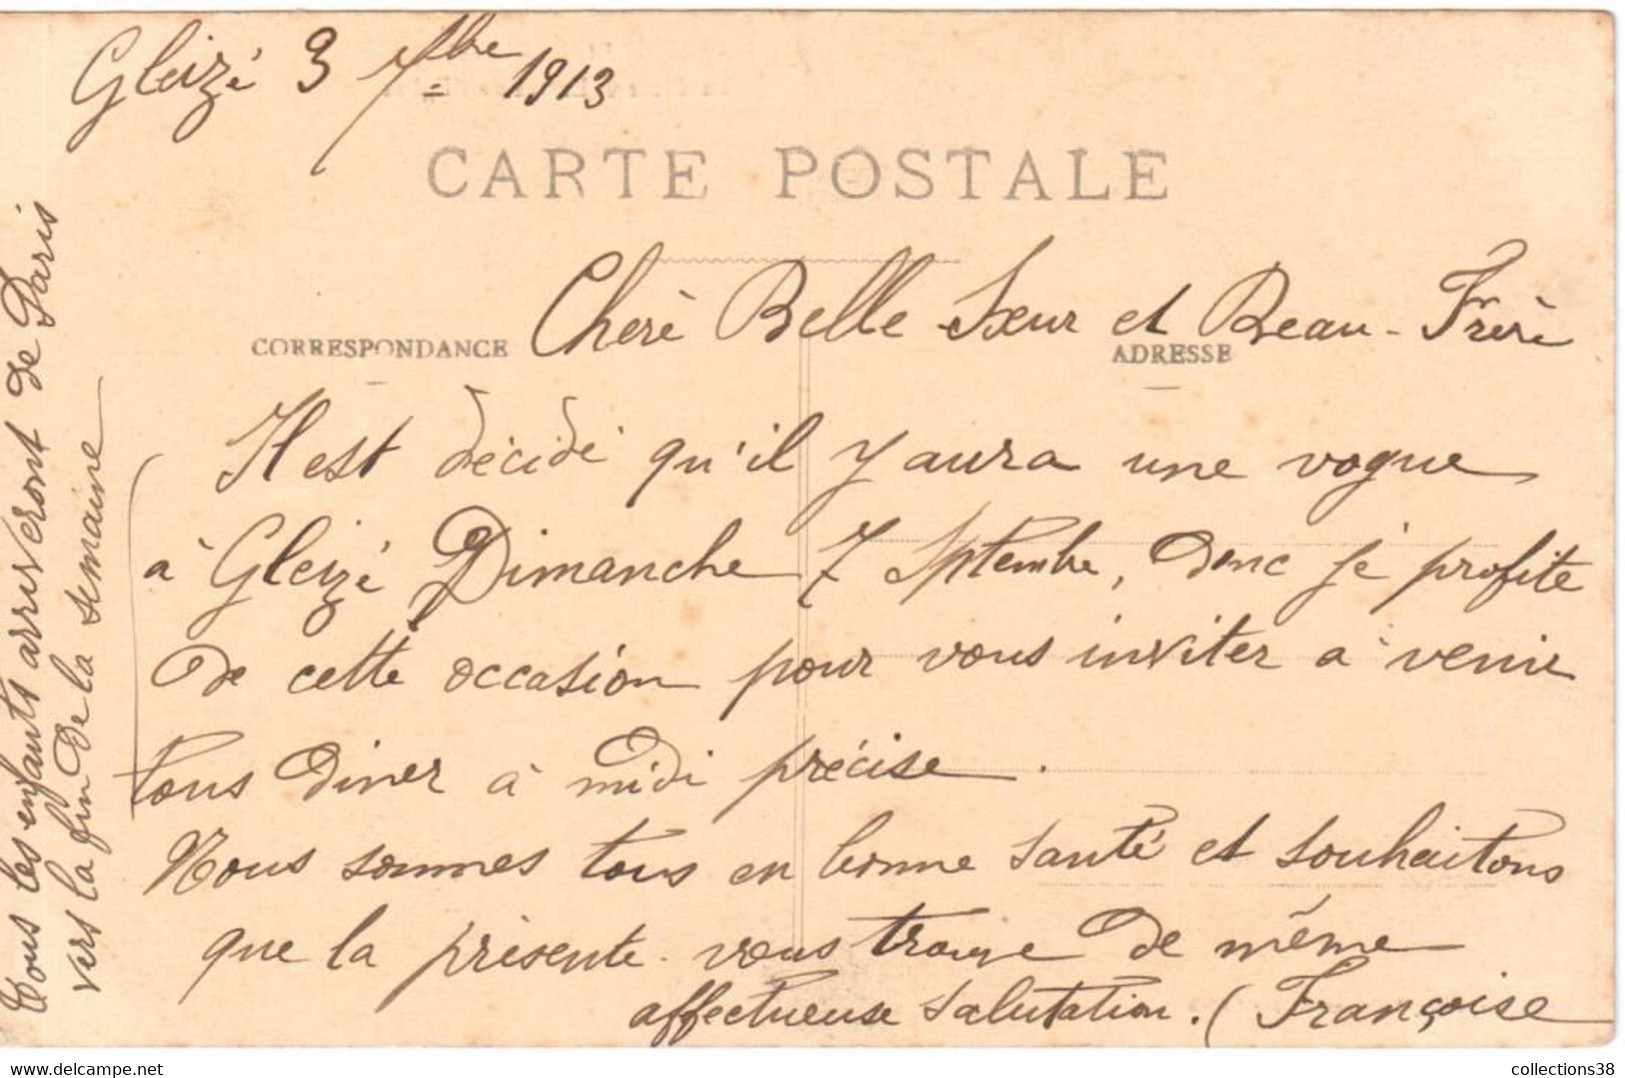 Gleizé 3 7bre 1913
CARTE POSTALE
Cheré Belle Sœur et Beau-Freré
CORRESPONDANCE
ADRESSE
Il est décidé qu'il y aura une vogue
à Gleizé Dimanche 7 Septembre, donc je profite
de cette occasion pour vous inviter à venir
tous diner à midi précise.
Nous sommes tous en bonne santé et souhaitons
que la présente vous trouve de même
affectueuse salutation. (Françoise
Tous les enfants arrivéront de Paris
vers la fin de la semaine
www.delcampe.net
collections38